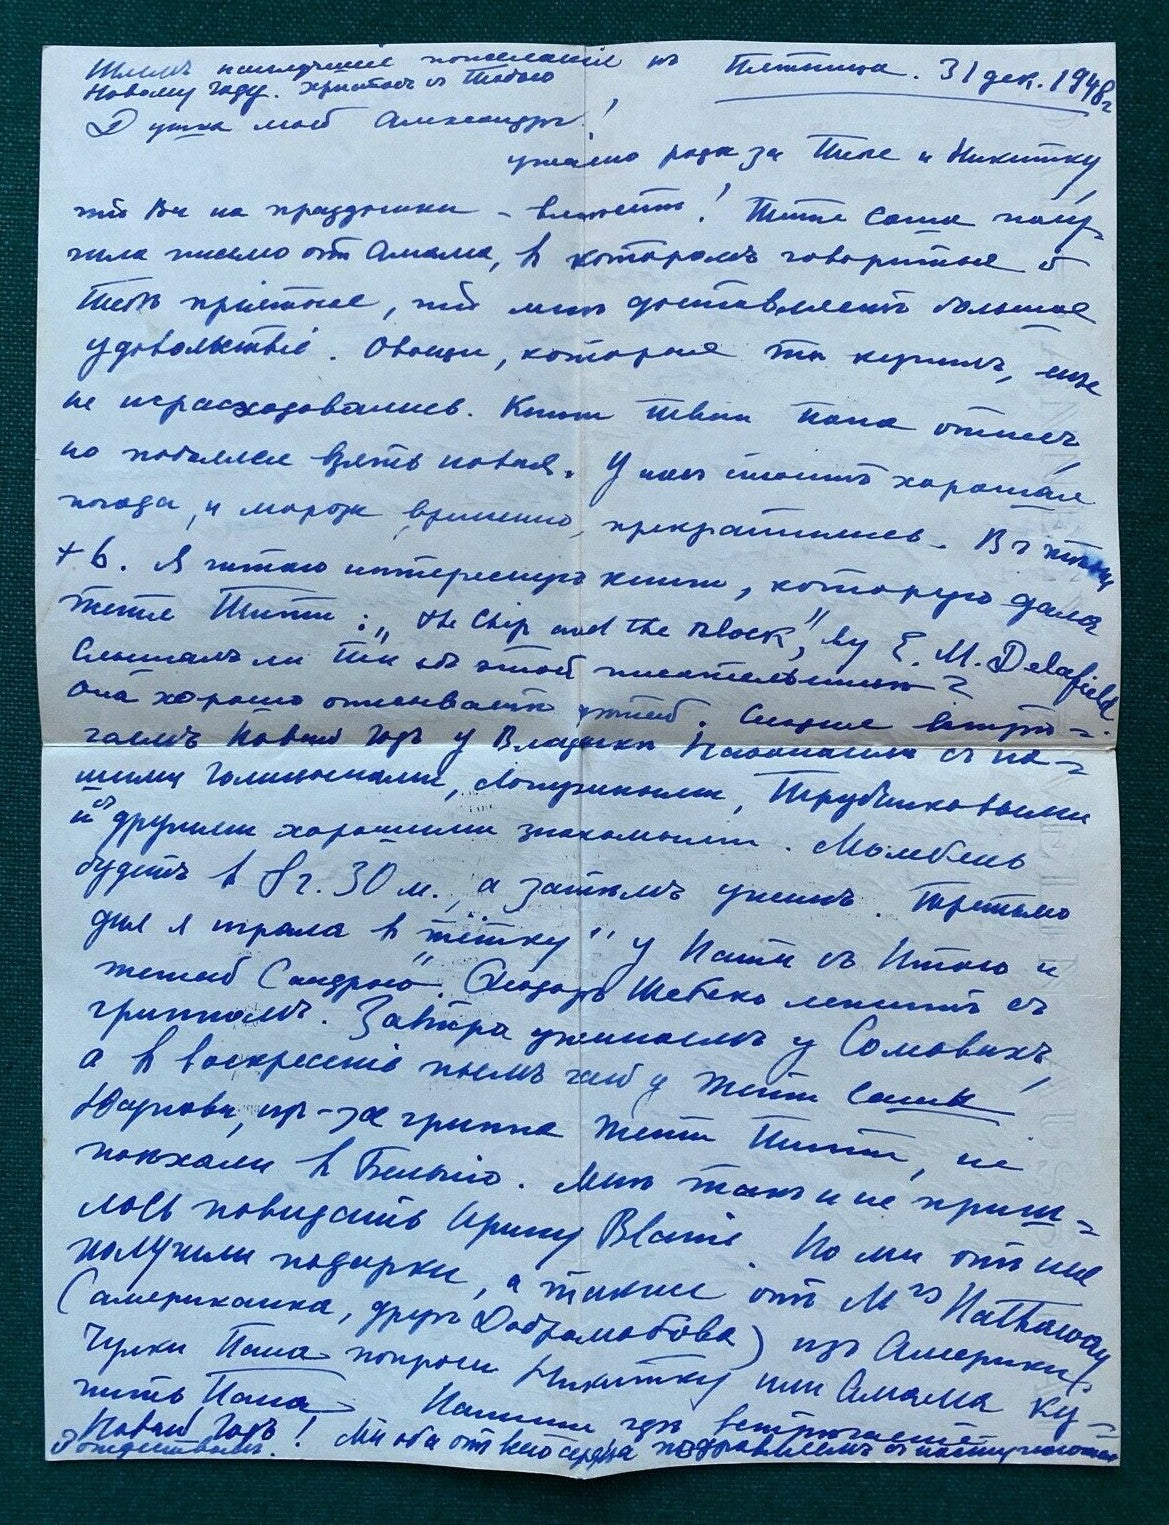 Шлемъ наилучшiе пожеланiе къ
Новому Году. Христосъ съ Тобою
Пятница. 31 дек. 1948 г
Душка мой Александръ!
ужасно рада за Тебя и Никитку
что Вы на праздники - вместѣ! Тетя Саша полу-
чила письмо отъ Амама, въ которомъ говорится о
Тебѣ прiятное, что мнѣ доставляетъ большое
удовольствiе. Овощи, которые ты купилъ, еще
не израсходовались. Книги Твои Папа отнесъ
но побоялся взять новыя. У насъ стоитъ хорошая
погода, и морозы временно прекратились.
+6. Я читаю интересную книгу, которую дала
тетя Тити: „the Chip and the Block", by E. M. Delafield
Слышалъ ли Ты объ этой писательницѣ?
Она хорошо описываетъ дѣтей. Сегодня встрѣ-
чаемъ Новый Годъ у Владыки Нафанаила съ на-
шими Голицыными, Лопухиными, Трубниковыми
и съ другими хорошими знакомыми. Молебенъ
будетъ въ 8 г. 30 м., а затѣмъ ужинъ. Третьяго
дня я играла въ „тётку" у Кати съ Итою и
тетей Сандрой. Шебеко лежитъ съ
гриппомъ. Завтра ужинаемъ у Сомовыхъ,
а въ воскресенiе пьемъ чай у тети Саши
Нарновы, из-за гриппа тети Тити, не
поѣхали въ Бельгiю. Мнѣ такъ и не приш-
лось повидать Ирину Blams. Но мы отъ нее
получили подарки, а также отъ Mrs Hathaway
(американка, другъ Добролюбова) изъ Америки.
Чулки Папа попроси Никитку или Амама ку-
пить Папа. Напиши гдѣ встрѣчаешь
Новый Годъ! Мы оба отъ всего сердца поздравляемъ съ наступающимъ
Рождествомъ.